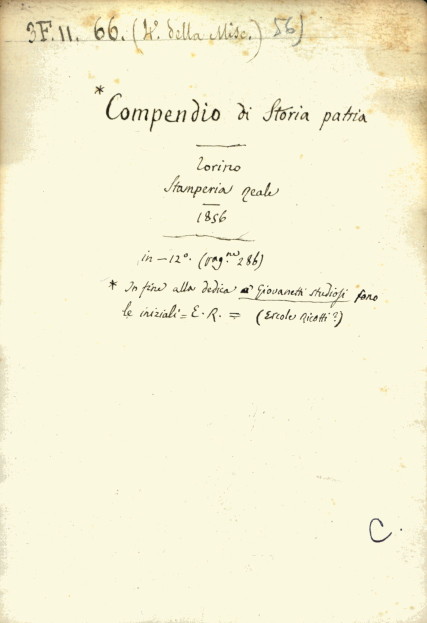 3F. 11. 66. (4º. della Misc.) 56)
*Compendio di Storia patria
Torino
Stamperia Reale
1856
in-12º. (pag.ne 286)
* In fine alla dedica a' Giovanetti studiosi sono
le iniziali = E. R. = (Ercole Ricotti?)
C.